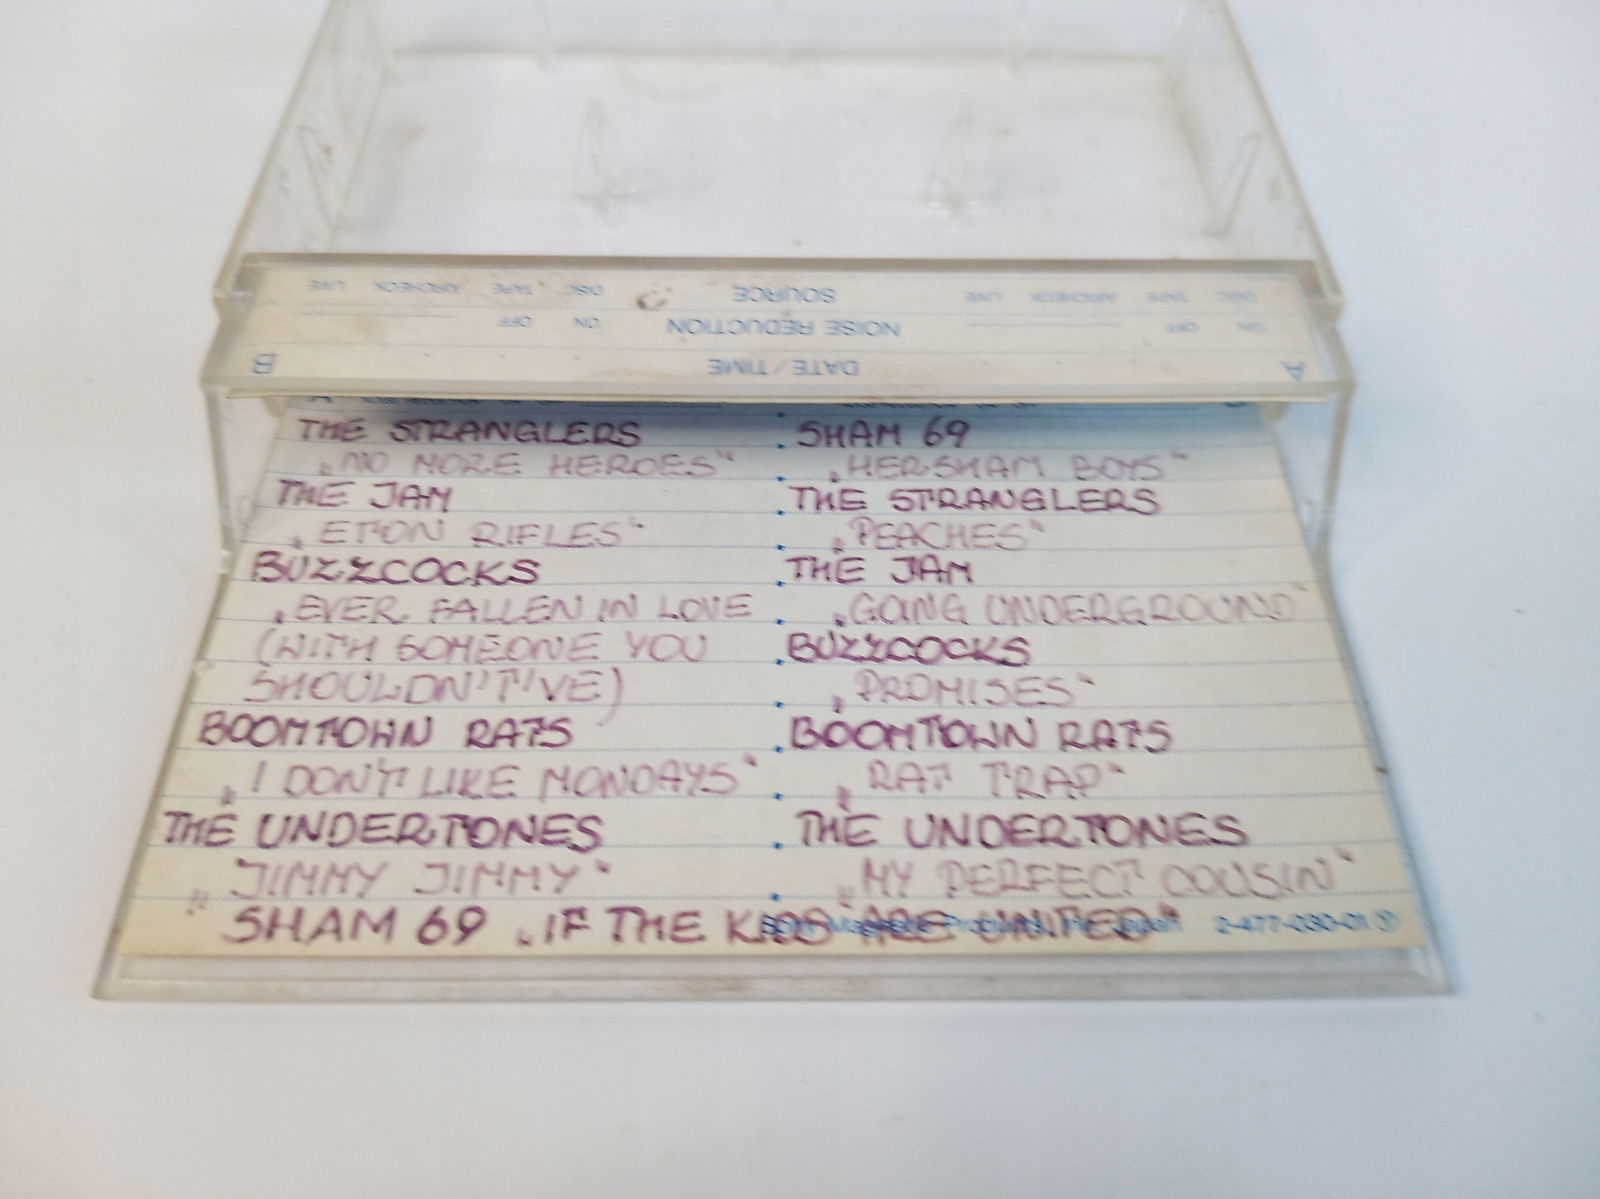 LIVE AIRCHECK TAPE DISC SOURCE LIVE AIRCHECK TAPE DISC
OFF ON NOISE REDUCTION OFF ON
B DATE/TIME A
THE STRANGLERS
„NO MORE HEROES“
THE JAM
„ETON RIFLES“
BUZZCOCKS
„EVER FALLEN IN LOVE
(WITH SOMEONE YOU
SHOULDN'T'VE)
BOOMTOWN RATS
„I DON'T LIKE MONDAYS“
THE UNDERTONES
„JIMMY JIMMY“
SHAM 69 „IF THE KIDS ARE UNITED“
SHAM 69
„HERSHAM BOYS“
THE STRANGLERS
„PEACHES“
THE JAM
„GOING UNDERGROUND“
BUZZCOCKS
„PROMISES“
BOOMTOWN RATS
„RAT TRAP“
THE UNDERTONES
„MY PERFECT COUSIN“
Sony Magnetic Products Inc. Japan 2-477-030-01